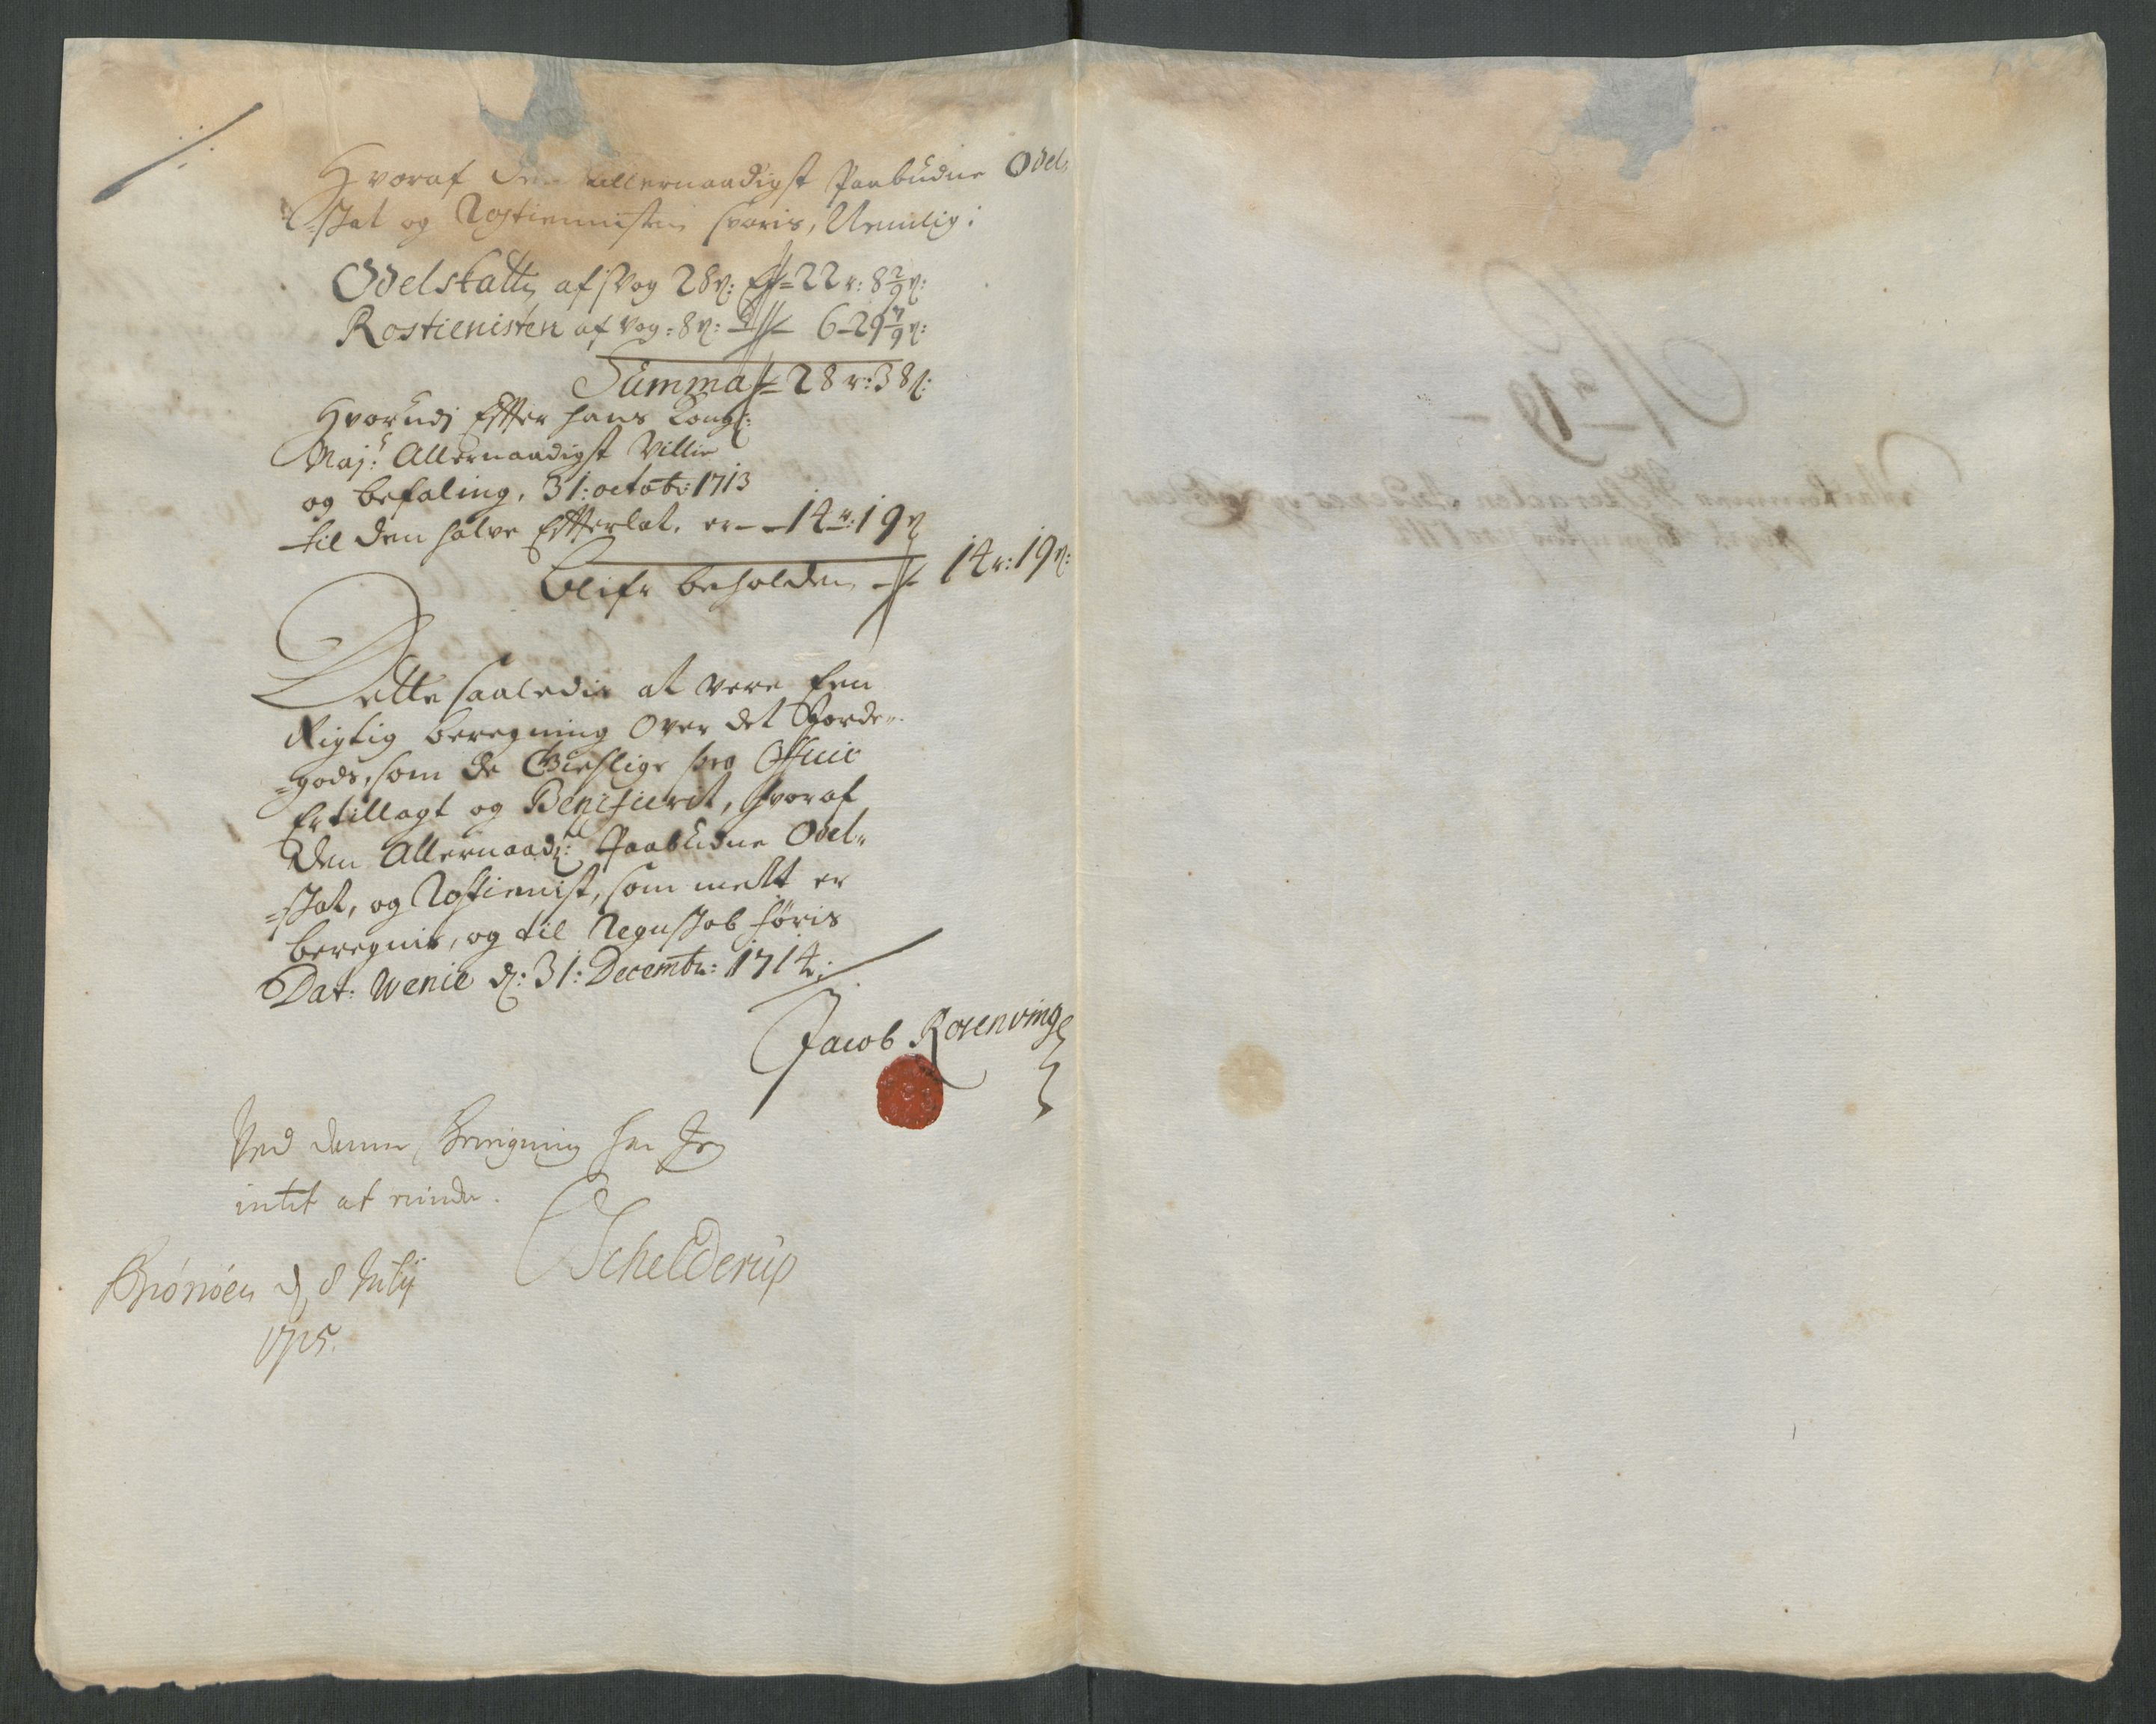 Hvoraf den Allernaadigst Paabudne Odel-
=skat og Rostienniste svaris, Nemlig:
Odelskatt af Vog 28 s: er = 22 r: 8 2/9 s:
Rostienisten af Vog: 8 s: 6 - 29 7/9 s:
Summa = 28 r: 38 s:
Hvorudj Effter hans Kongl:
Maj: Allernaadigst Villie
og befaling, 31: octobr: 1713
til den halve Effterlat. er - 14 r: 19 s
Blifr beholden - 14 r: 19 s:
Dette saaledis at vere Een
Rigtig beregning Over det Jorde-
=gods, som de Gieslige pro Officio
Er tillagt og Benificerit, hvoraf
Den Allernaadst: Paabudne Odel-
=skat, og Rostienist, som melt er
beregnis, og til Regnskab føris
Dat: Wenie d: 31: Decembr: 1714:
Jacob Rosenvinge
Ved denne Beregning har Jeg
intet at minde.
Schelderup
Brönöen d, 8 July
1715.
No 19